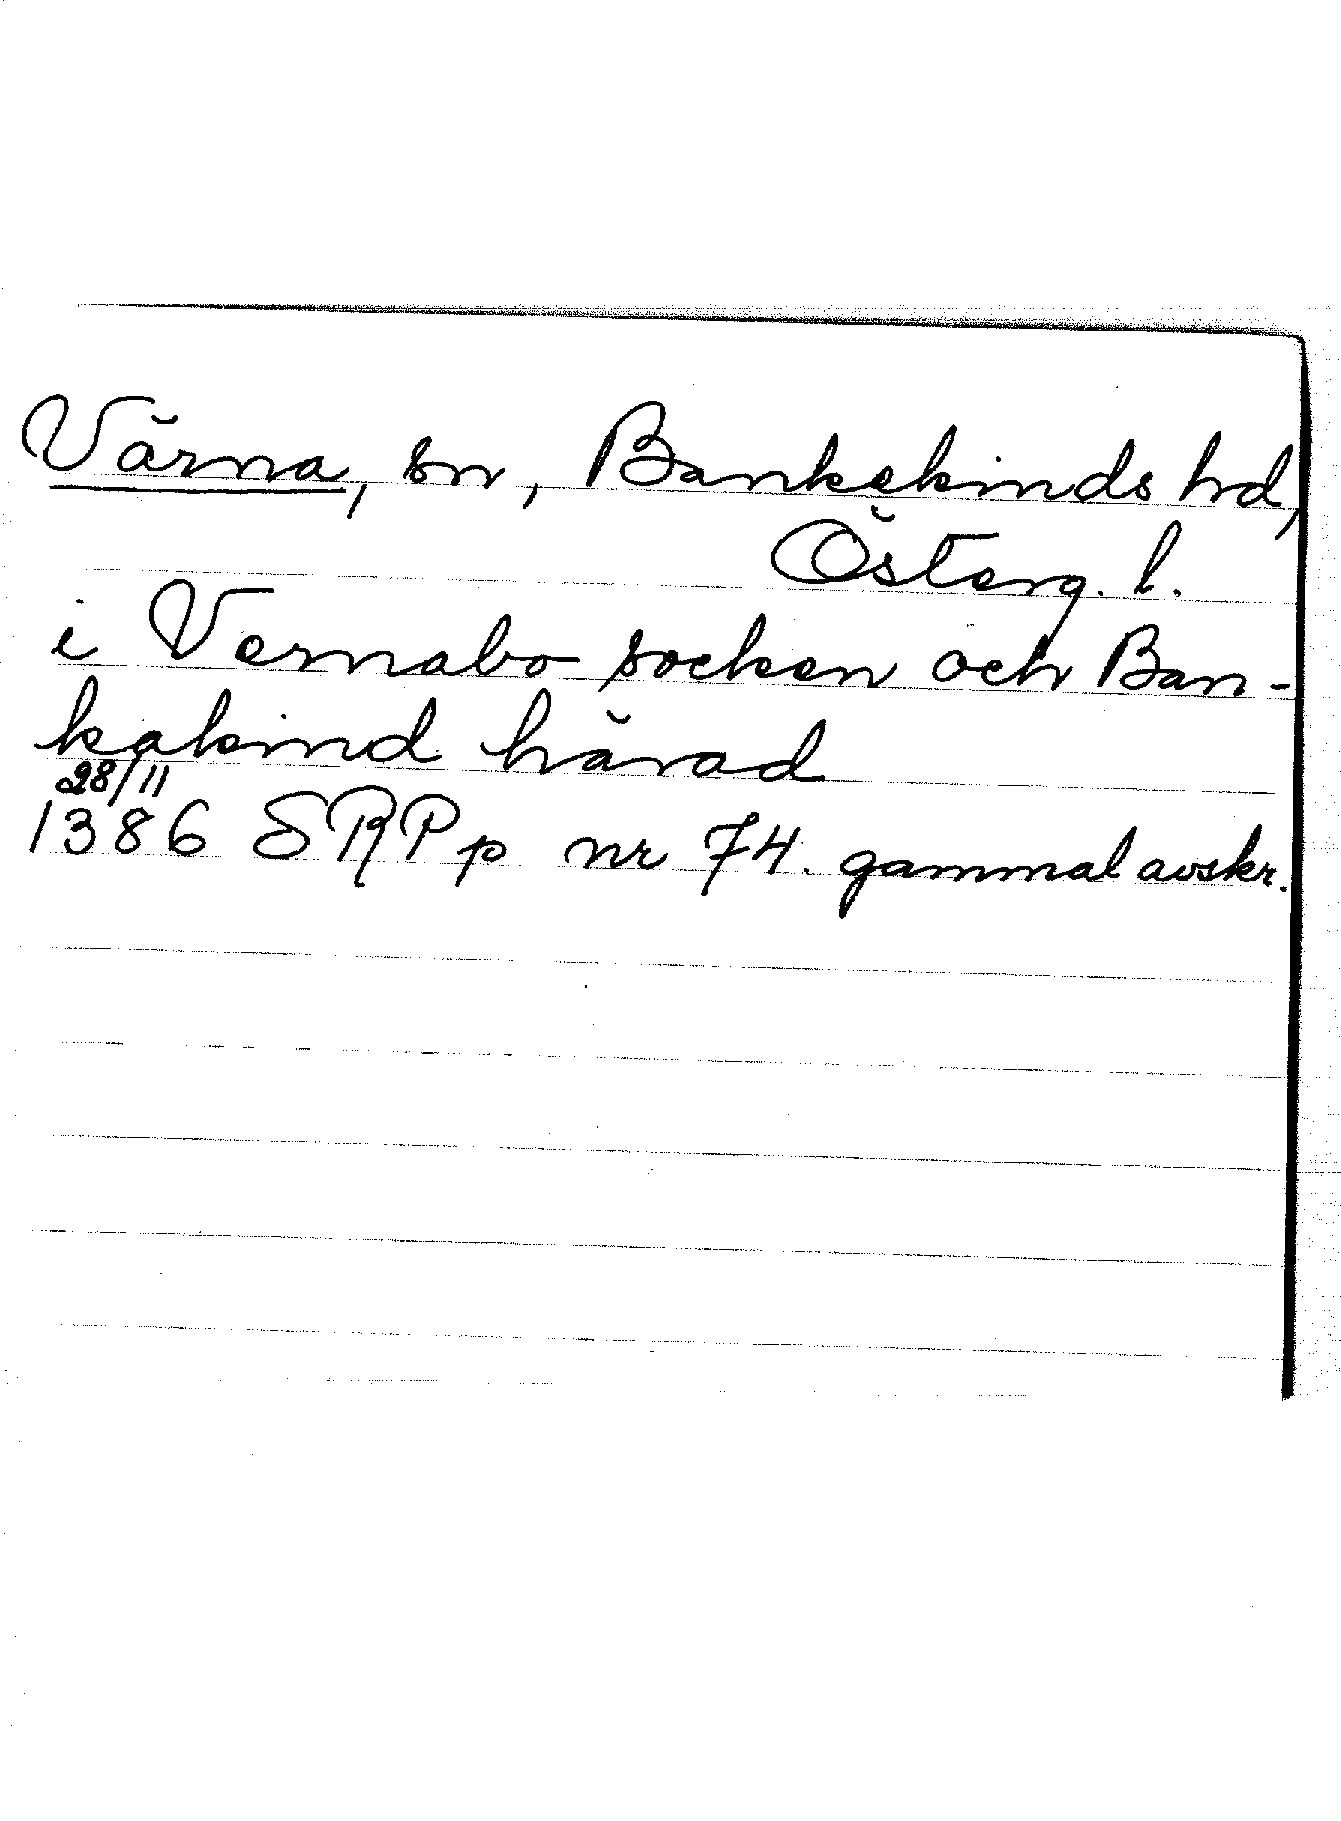 Värna, sn, Bankekinds hrd,
Österg. l.
i Vernabo socken och Ban-
kakind härad
28/11
1386 SRPp nr 74. gammal avskr.